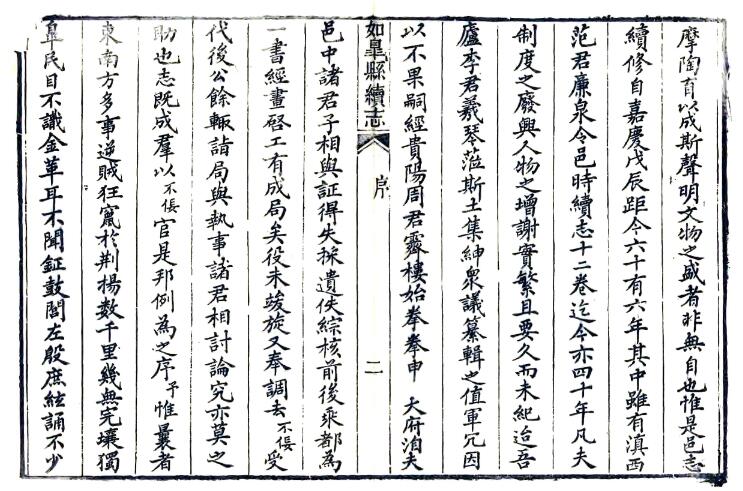 摩陶育以成斯聲明文物之盛者非無自也惟是邑志
續修自嘉慶戊辰距今六十有六年其中雖有滇西
范君廉泉令邑時續志十二卷迄今亦四十年凡夫
制度之廢興人物之增謝實繁且要久而未紀迨吾
廬李君羲琴蒞斯土集紳衆議纂輯之值軍冗因
以不果嗣經貴陽周君霽樓始拳拳申 大府洎夫
如皋縣續志 序 二
邑中諸君子相與証得失採遺佚綜核前後乘都為
一書經畫啓工有成局矣役未竣旋又奉調去不佞受
代後公餘輒詣局與執事諸君相討論究亦莫之
助也志既成羣以不佞官是邦例為之序予惟曩者
東南方多事逆賊狂竄於荆揚数千里幾無完壤獨
皐民目不識金革耳不聞鉦鼓閭左殷庶絃誦不少